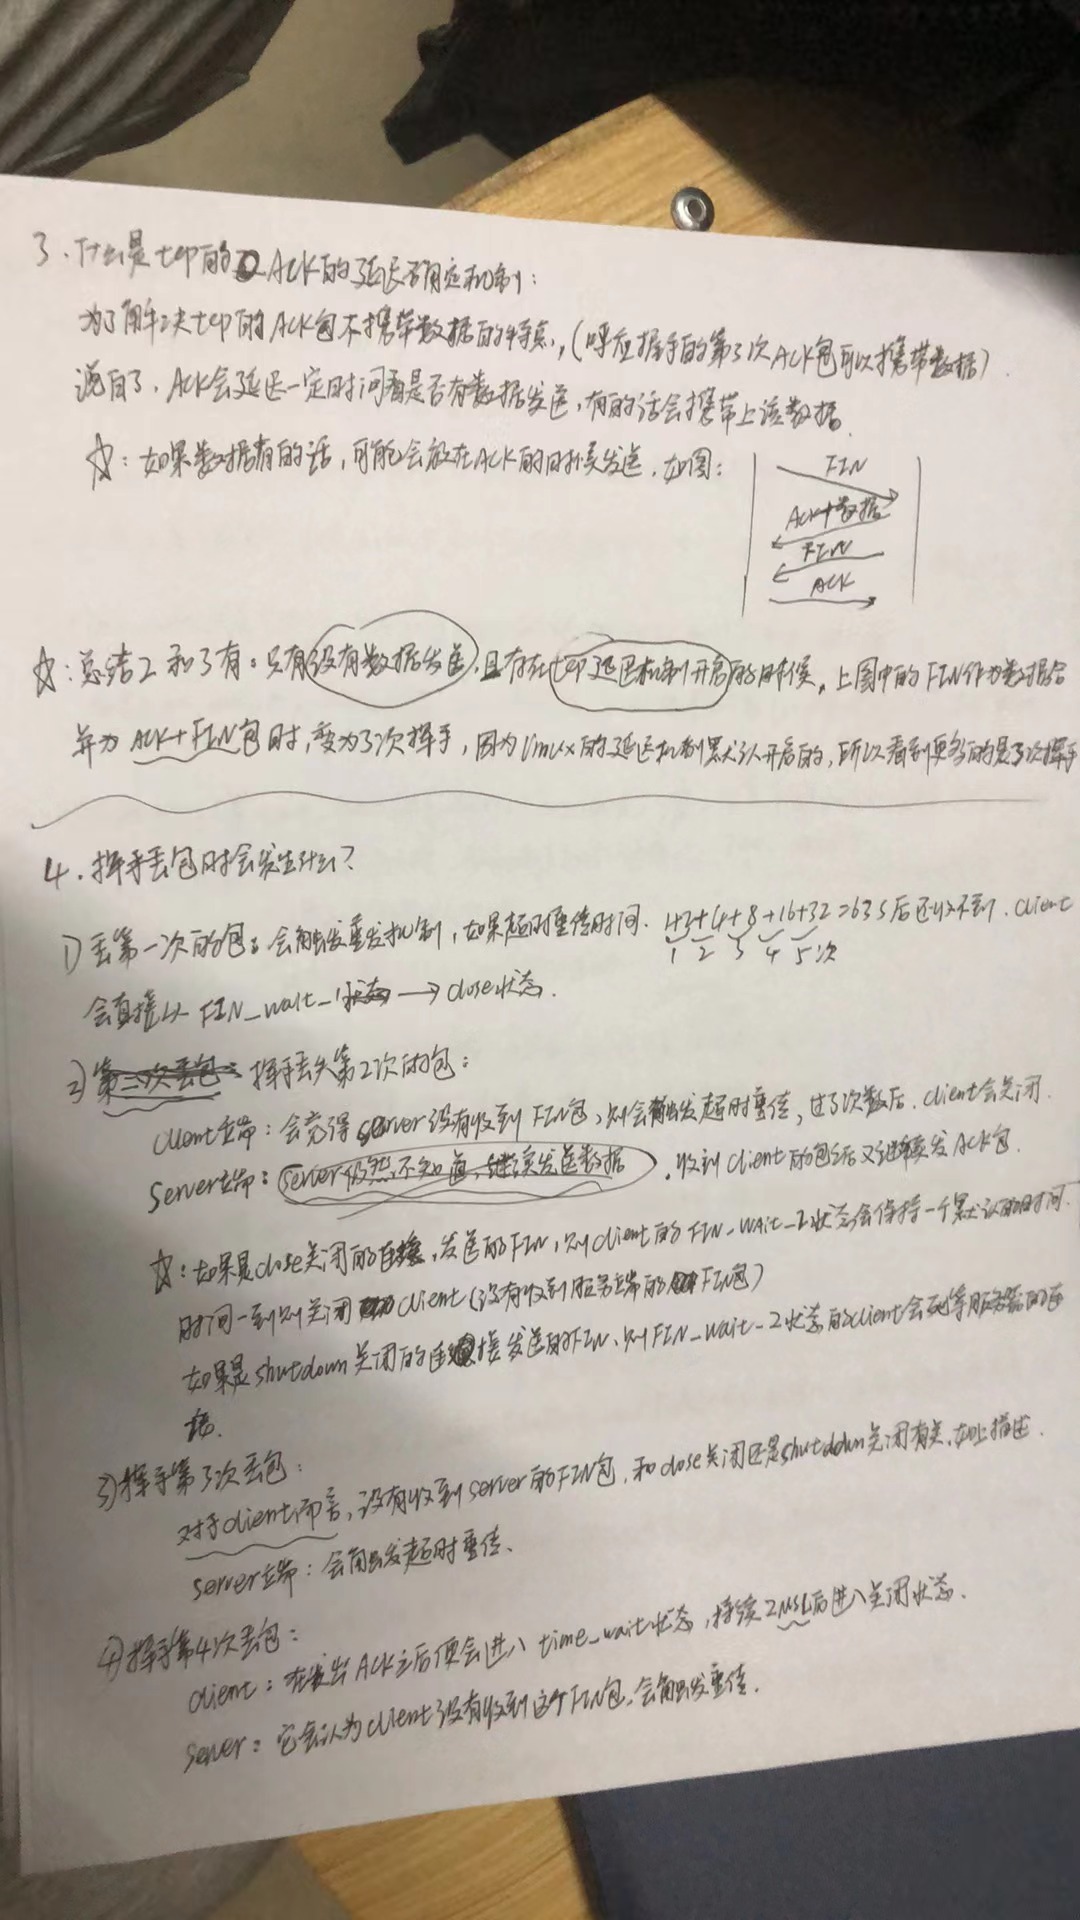 3.什么是tcp的ACK的延迟确定机制:
为了解决tcp的ACK包不携带数据的特点,(呼应握手的第3次ACK包可以携带数据).
说白了,ACK会延迟一定时间看是否有数据发送,有的话会携带上该数据.
☆:如果数据有的话,可能会放在ACK的时候发送.如图:
FIN
ACK+数据
FIN
ACK
☆:总结2和3有:只有没有数据发送,且存在tcp延迟机制开启的时候,上图中的FIN作为数据合
并为ACK+FIN包时,变为3次挥手,因为linux的延迟机制默认开启的,所以看到更多的是3次挥手
4.挥手丢包时会发生什么?
1)丢第一次的包:会触发重发机制,如果超时重传时间.1+2+4+8+16+32=63s后还收不到.client
1 2 3 4 5次
会直接从FIN_wait_1状态→close状态.
2)第二次丢包:挥手丢失第2次的包:
client端:会觉得server没有收到FIN包,则会触发超时重传,过了次数后.client会关闭.
server端:server仍然不知道,继续发送数据.收到client的包后又继续发ACK包.
☆:如果是close关闭的连接,发送的FIN,则client的FIN_WAIT_2状态会保持一个默认的时间.
时间一到则关闭client(没有收到服务端的FIN包)
如果是shutdown关闭的连接发送的FIN、则FIN_wait-2状态的client会死等服务器的
3)挥手第3次丢包:
对于client而言,没有收到server的FIN包,和close关闭还是shutdown关闭有关,如上描述.
server端:会触发超时重传、
4)挥手第4次丢包:
client:在发出ACK之后便会进入time_wait状态,持续2MSL后进入关闭状态.
server:它会认为client没有收到这个FIN包,会触发重传.